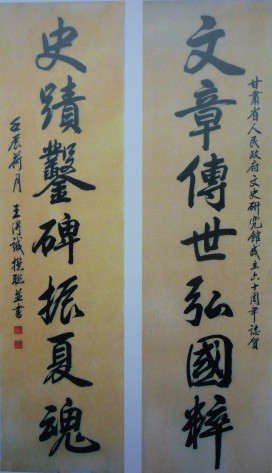 甘肅省人民政府文史研究館成立六十周年誌賀
文章傳世弘國粹
史蹟鑿碑振夏魂
壬辰荷月 王得誠撰聯並書